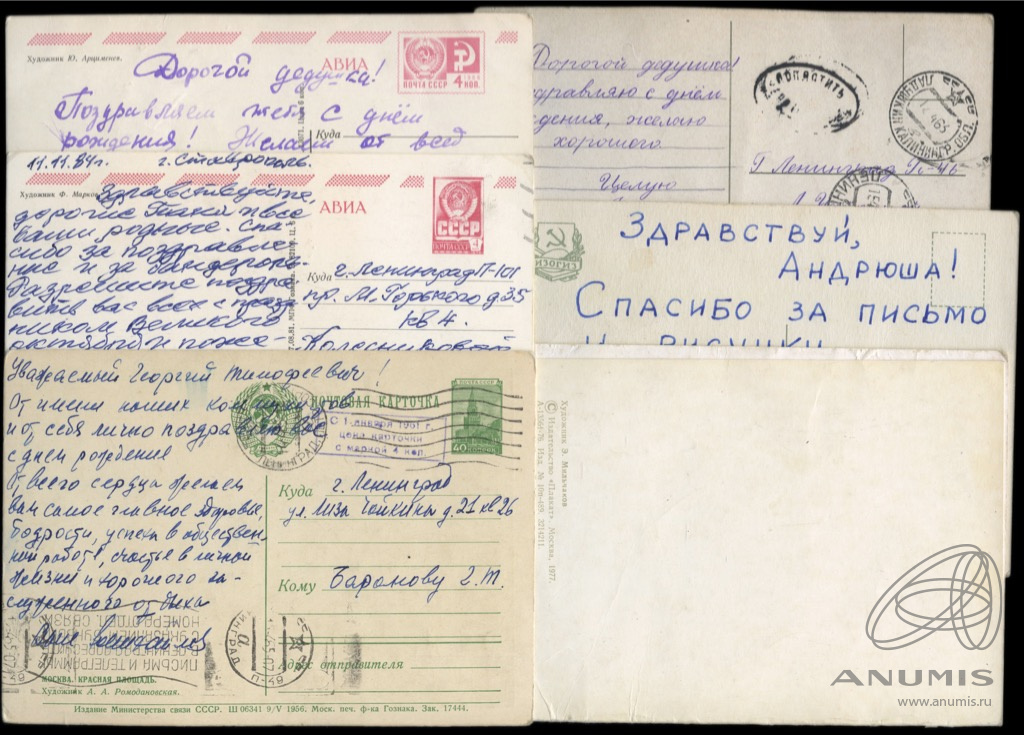 Художник Ю. Арцименев.
АВИА
ПОЧТА СССР
4 коп.
Дорогой дедушка!
Поздравляем тебя с днём
рождения! Желаем от всей
Куда
Дорогой дедушка!
здравляю с днём
ждения, желаю
хорошего.
Целую
ДОПЛАТИТЬ
КАЛИНИНГР. ОБЛ.
Г Ленинград
11.11.84г. г. Ставрополь.
Художник Ф. Марков
АВИА
СССР
Здравствуйте,
дорогие Таня и все
ваши родные. Спа-
сибо за поздравле-
ние и за бандероль.
Разрешите поздра-
вить вас всех с празд-
ником Великого
октября и поже-
Куда г. Ленинград П-101
пр. М. Горького д. 35
кв 4.
Колесниковой
ИЗОГИЗ
ЗДРАВСТВУЙ,
АНДРЮША!
СПАСИБО ЗА ПИСЬМО
И РИСУНКИ
Уважаемый Георгий Тимофеевич!
От имени наших
и от себя лично поздравляю Вас
с днем рождения
От всего сердца желаем
вам самое главное здоровье,
бодрости, успеха в обществен-
ной работе, счастье в личной
жизни и хорошего за-
служенного отдыха
ПОЧТОВАЯ КАРТОЧКА
С 1 января 1961 г.
цена карточки
с маркой 4 коп.
ПОЧТА СССР
40
Куда г. Ленинград
ул. Лиза Чайкина д. 21 кв 26
Кому Баронову Г. Т.
Адрес отправителя
ПИСЬМА И ТЕЛЕГРАММЫ
НОМЕРА ОТДЕЛ. СВЯЗИ
МОСКВА. КРАСНАЯ ПЛОЩАДЬ.
Художник А. А. Ромодановская.
Издание Министерства связи СССР. Ш 06341 9/V 1956. Моск. печ. ф-ка Гознака. Зак. 17444.
Художник Э. Мильчаков
© Издательство «Плакат». Москва, 1977.
ANUMIS
www.anumis.ru